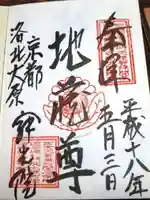 奉拝
平成十八年
五月三日
地蔵尊
京都
洛北大原